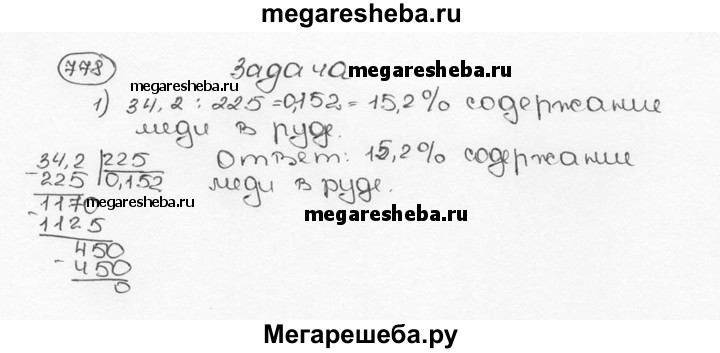 megaresheba.ru
778 Задача megaresheba.ru
megaresheba.ru
1) 34,2 : 225 = 0,152 = 15,2% содержание
меди в руде.
34,2 | 225 Ответ: 15,2% содержание
- 225 | 0,152 меди в руде.
1170 megaresheba.ru
- 1125 megaresheba.ru
450
- 450
0
Мегарешеба.ру